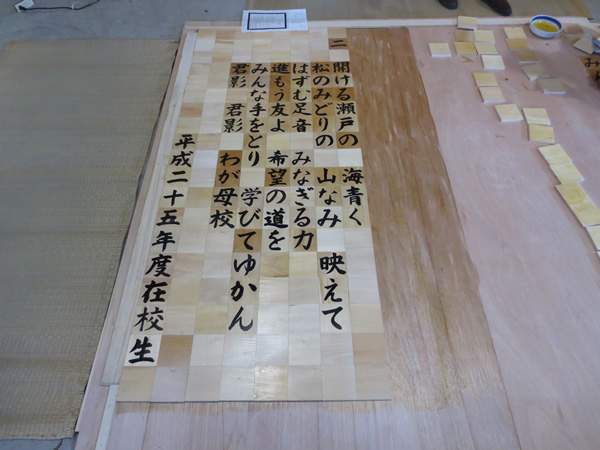 二
開ける瀬戸の 海青く
松のみどりの 山なみ 映えて
はずむ足音 みなぎる力
進もう友よ 希望の道を
みんな手をとり 学びてゆかん
君影 君影 わが母校
平成二十五年度在校生